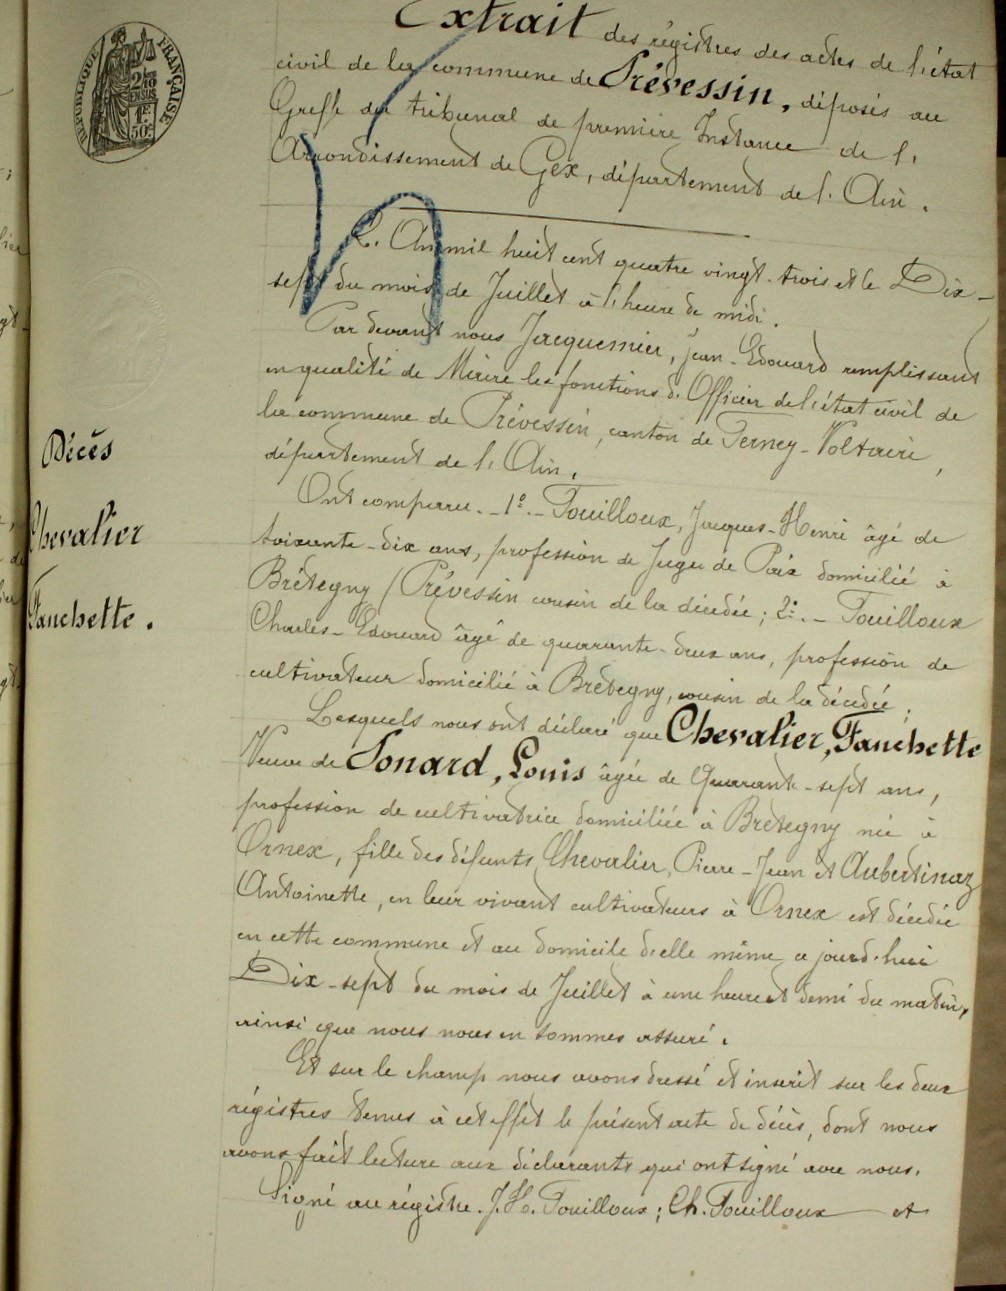 Extrait des régistres des actes de l'état
civil de la commune de Prévessin, déposés au
Greffe du tribunal de première Instance de l'
Arrondissement de Gex, département de l'Ain.
RÉPUBLIQUE FRANÇAISE
2/10
EN SUS
1F.
50c
L'An mil huit cent quatre vingt-trois et le Dix-
sept du mois de Juillet à l'heure de midi.
Par devant nous Jacquemier, Jean-Edouard remplissant
en qualité de Maire les fonctions d'Officier de l'état civil de
la commune de Prévessin, canton de Ferney-Voltaire,
département de l'Ain.
Décès
Chevalier
Fanchette.
Ont comparu. - 1º. - Fouilloux, Jacques-Henri âgé de
soixante-dix ans, profession de Juge de Paix domicilié à
Brétegny / Prévessin cousin de la décédée; 2º. - Fouilloux
Charles-Edouard âgé de quarante-deux ans, profession de
cultivateur domicilié à Brétegny, cousin de la décédée;
Lesquels nous ont déclaré que Chevalier, Fanchette
Veuve de Ponard, Louis âgée de Quarante-sept ans,
profession de cultivatrice domiciliée à Brétegny née à
Ornex, fille des défunts Chevalier, Pierre-Jean et Aubertinaz
Antoinette, en leur vivant cultivateurs à Ornex est décédée
en cette commune et au domicile d'elle même ce jourd'hui
Dix-sept du mois de Juillet à une heure et demi du matin,
ainsi que nous nous en sommes assuré.
Et sur le champ nous avons dressé et inscrit sur les deux
régistres tenus à cet effet le présent acte de décès, dont nous
avons fait lecture aux déclarants qui ont signé avec nous.
Signé au régistre. J. H. Fouilloux; Ch. Fouilloux et